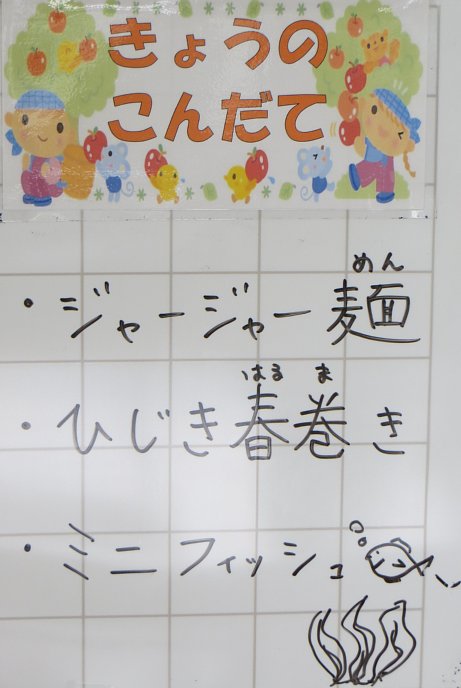 きょうの
こんだて
めん
・ジャージャー麺
はる ま
・ひじき春巻き
・ミニフィッシュ